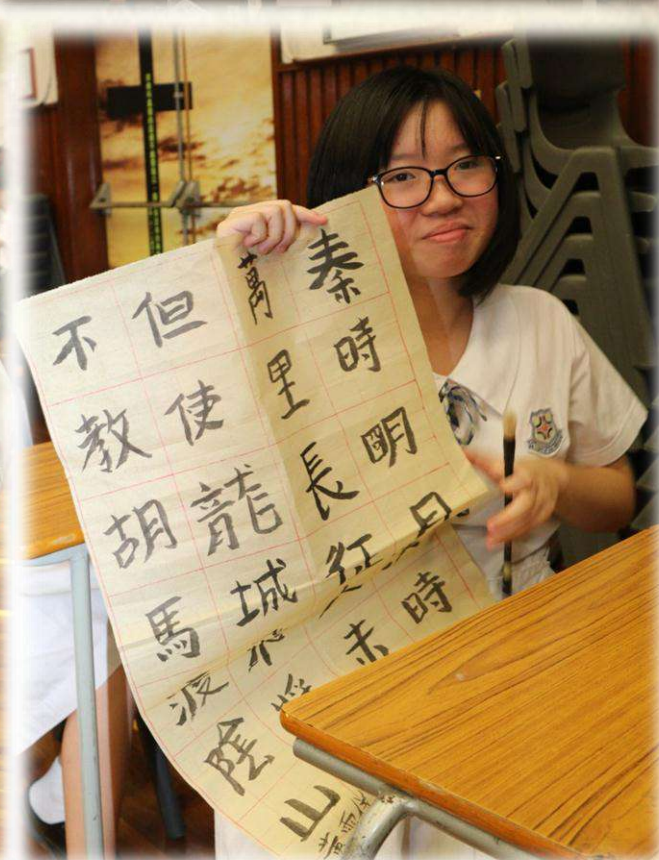 秦時明月時
萬里長征未
但使龍城將
不教胡馬渡陰山